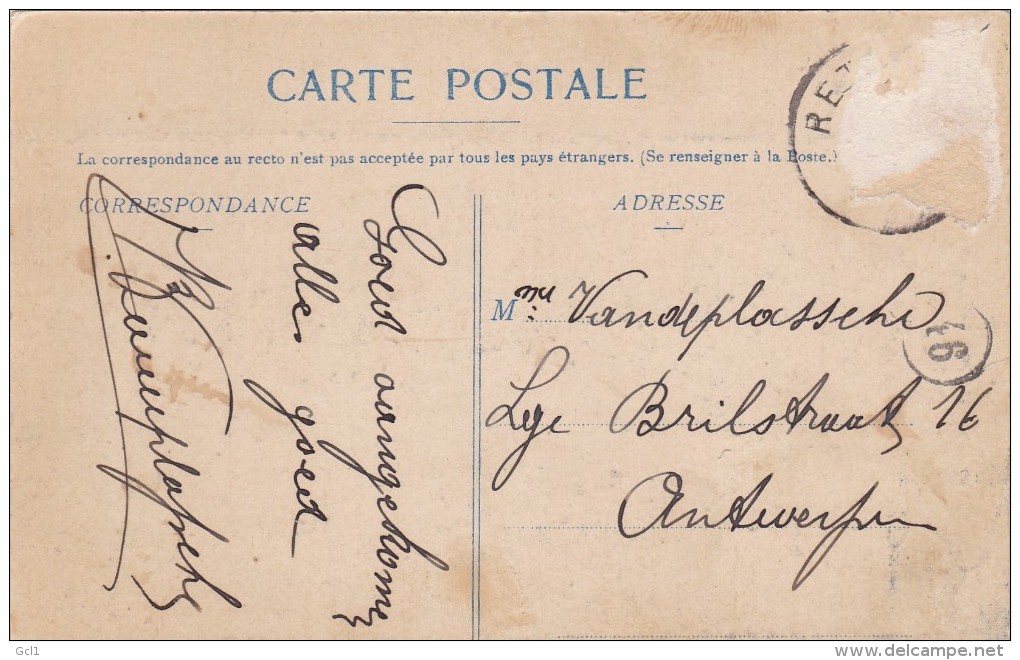 CARTE POSTALE
La correspondance au recto n'est pas acceptée par tous les pays étrangers. (Se renseigner à la Poste.)
CORRESPONDANCE
ADRESSE
RET
Goed aangekomen
alles goed
Mme Vandeplassche
Lge Brilstraat 16
Antwerpen
Gcl1
delcampe.net